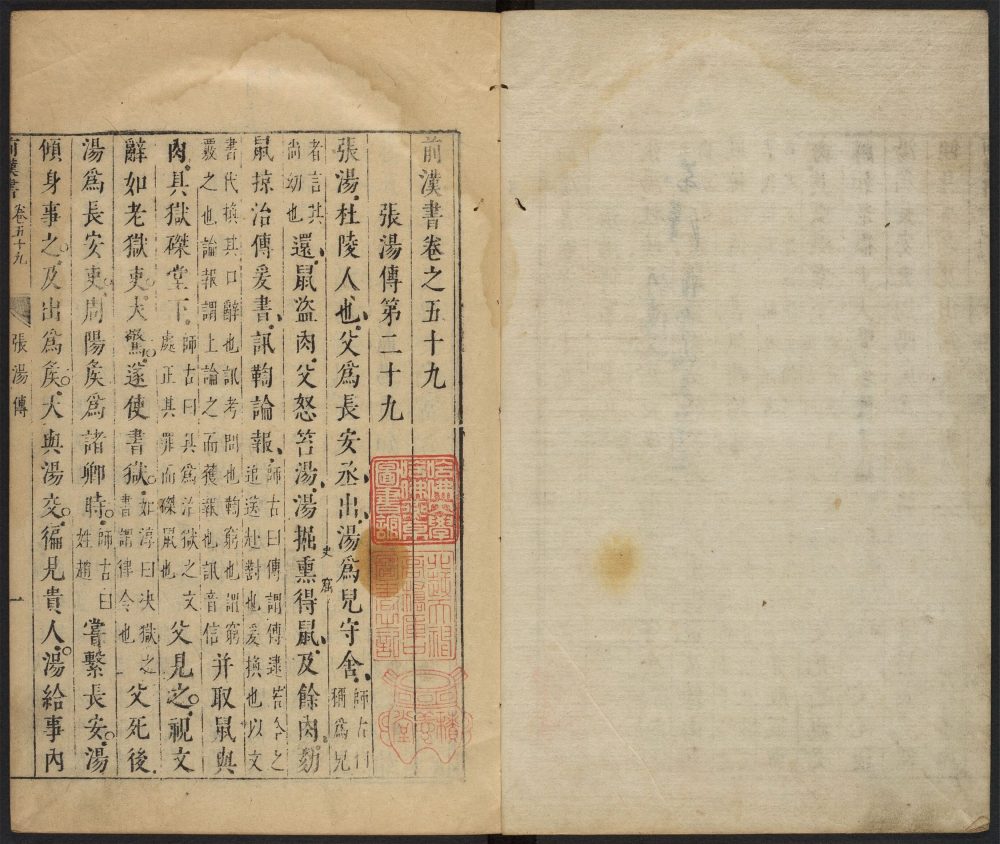 前漢書卷之五十九
張湯傳第二十九
張湯杜陵人也父爲長安丞出湯爲兒守舍師古曰稱爲兒
者言其尚幼也還鼠盜肉父怒笞湯湯掘熏得鼠及餘肉劾
史窟
鼠掠治傳爰書訊鞫論報師古曰傳謂傳逮若今之追送赴對也爰換也以文
書代換其口辭也訊考問也鞫窮也謂窮覈之也論報謂上論之而獲報也訊音信并取鼠與
肉具獄磔堂下師古曰具爲治獄之文處正其罪而磔鼠也父見之視文
辭如老獄吏大驚遂使書獄如淳曰決獄之書謂律令也父死後
湯爲長安吏周陽矦爲諸卿時師古曰姓趙嘗繫長安湯
傾身事之及出爲矦大與湯交徧見貴人湯給事內
前漢書 卷五十九 張湯傳 一
哈佛大學
哈佛燕京
圖書館